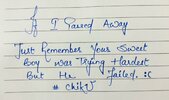 If I Passed Away
Just Remember Your Sweet
Boy was Trying Hardest
But He Failed. :(
# chikU